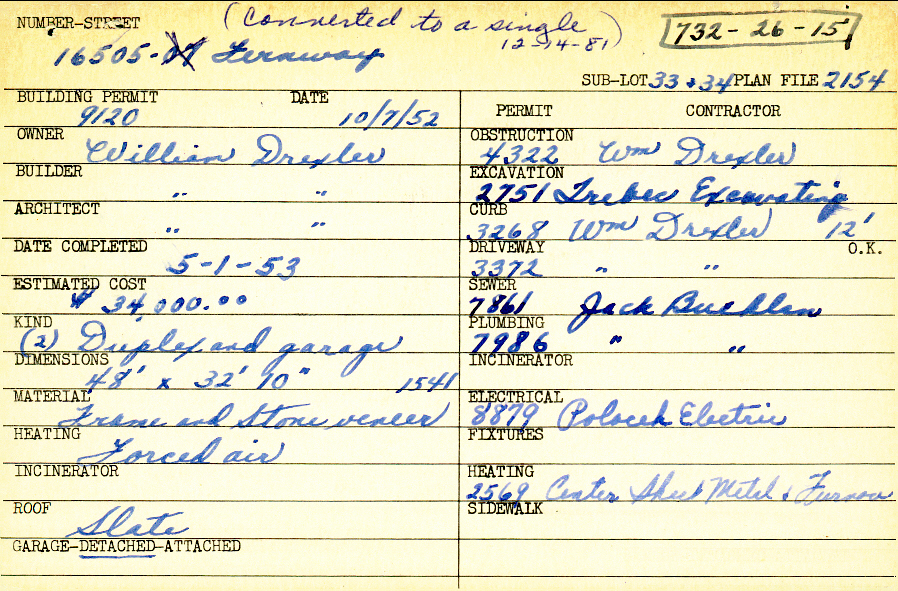 NUMBER-STREET (Converted to a single 12-14-81) 732-26-15
16505-07 Fernway
SUB-LOT 33 & 34 PLAN FILE 2154
BUILDING PERMIT DATE
9120 10/7/52
OWNER
William Drexler
BUILDER
" "
ARCHITECT
" "
DATE COMPLETED
5-1-53
ESTIMATED COST
$ 34,000.00
KIND
(2) Duplex and garage
DIMENSIONS
48' x 32' 10" 1541
MATERIAL
Frame and Stone veneer
HEATING
Forced air
INCINERATOR
ROOF
Slate
GARAGE-DETACHED-ATTACHED
PERMIT CONTRACTOR
OBSTRUCTION
4322 Wm Drexler
EXCAVATION
2751 Trebec Excavating
CURB
3268 Wm Drexler 12'
DRIVEWAY O.K.
3372 " "
SEWER
7861 Jack Buehlan
PLUMBING
7986 " "
INCINERATOR
ELECTRICAL
8879 Polacek Electric
FIXTURES
HEATING
2569 Center Sheet Metal & Furnace
SIDEWALK